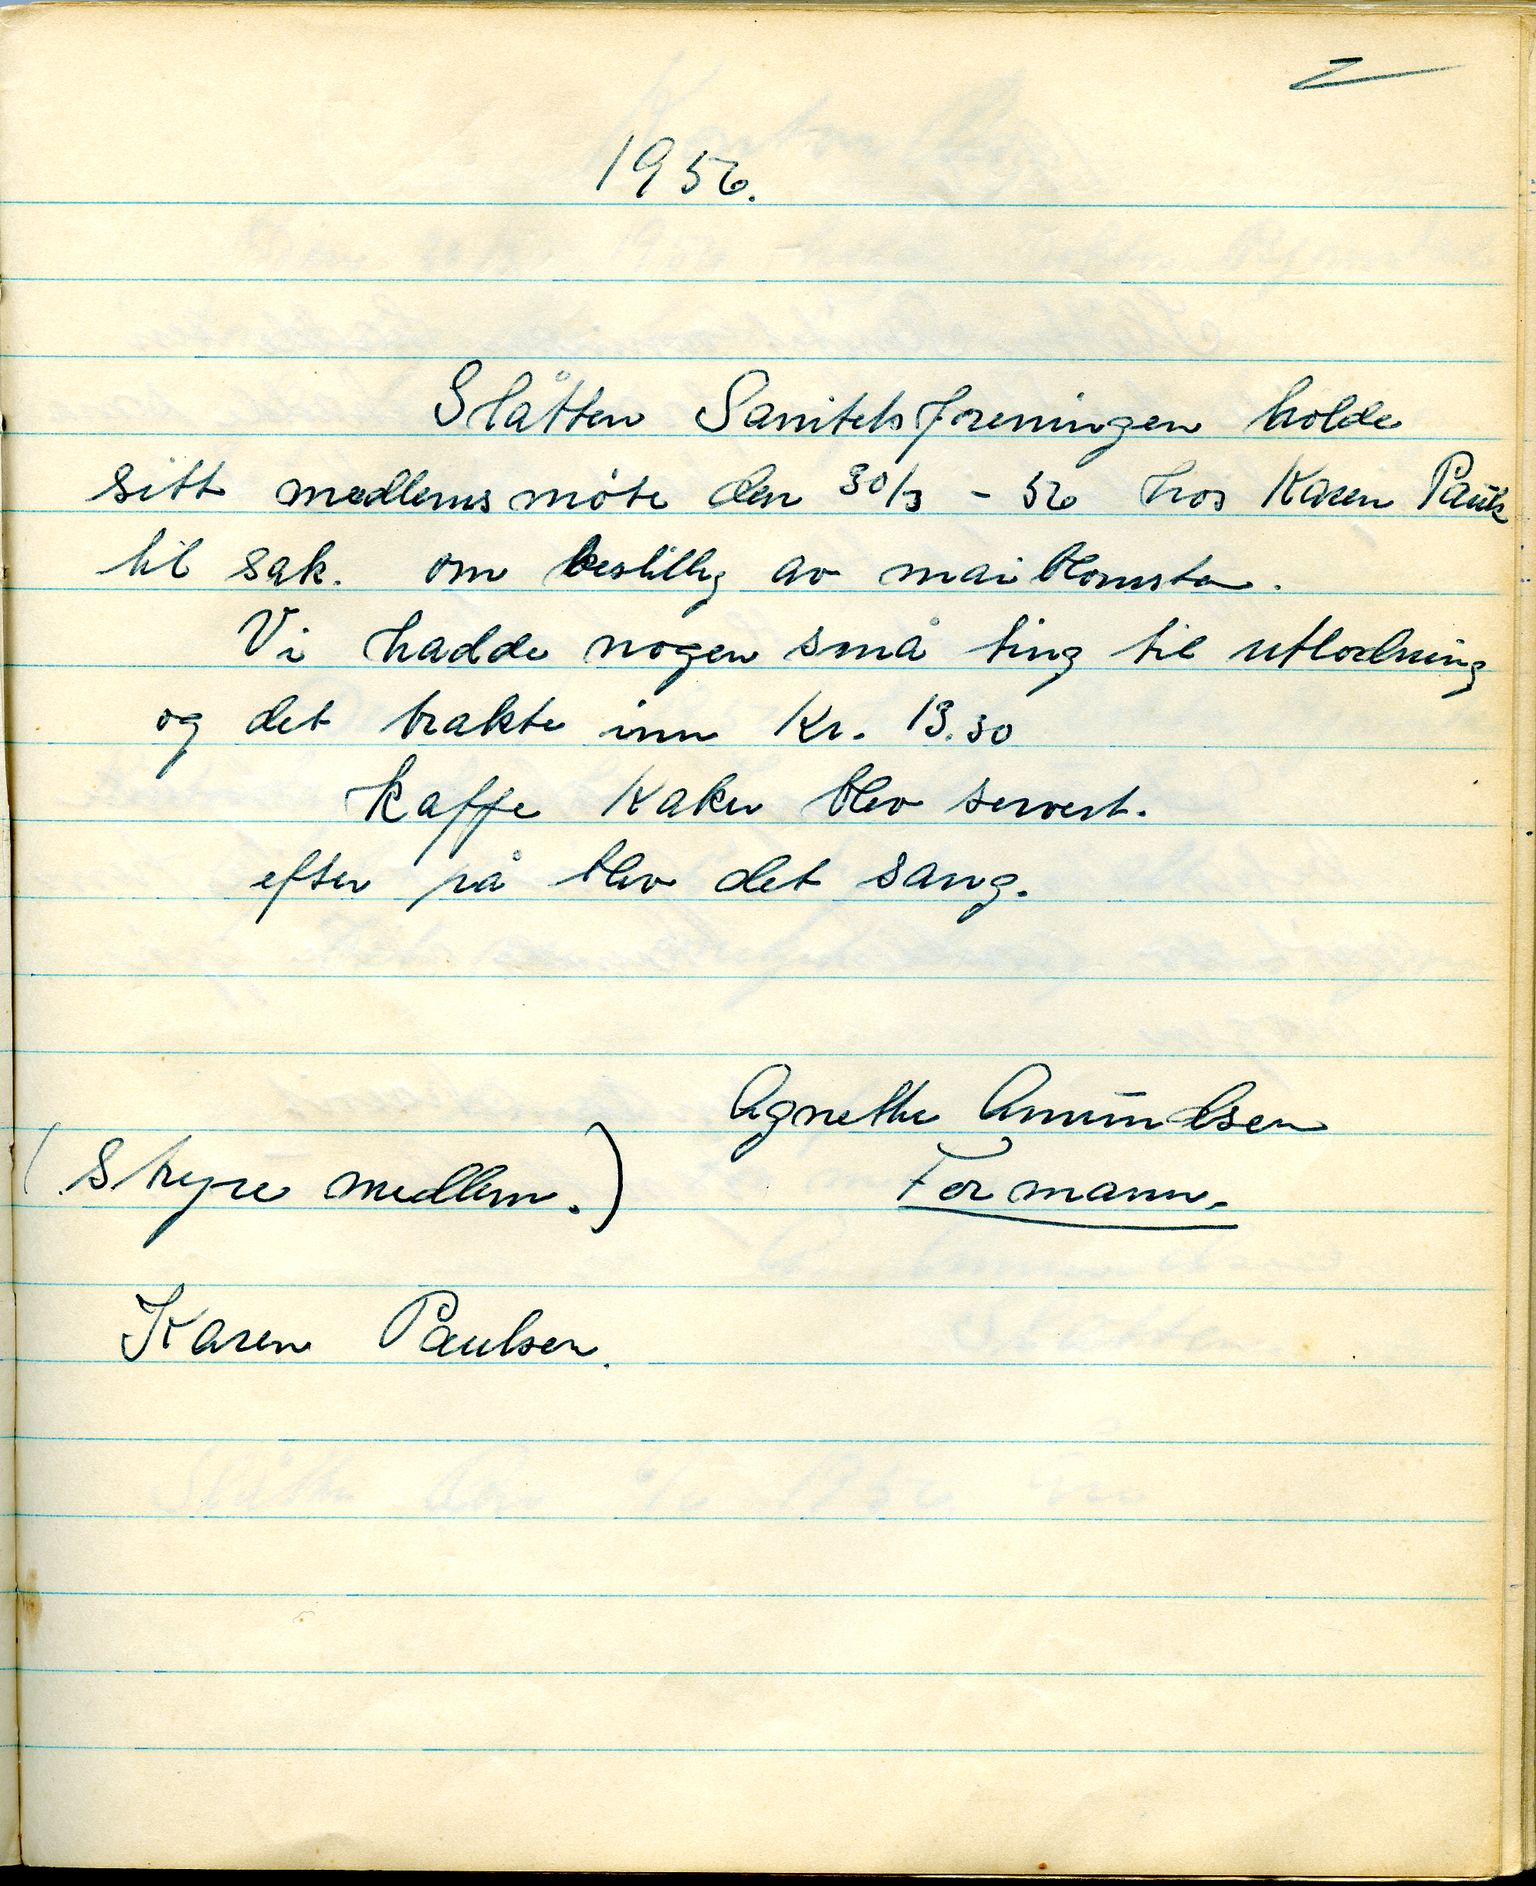 2
1956.
Slåtten Sanitetsforeningen holde
sitt medlemsmöte den 30/3 - 56 hos Karen Pauls
til sak. om bestillig av maiblomster.
Vi hadde nogen små ting til utlodning
og det brakte inn Kr. 13.30
kaffe Kaker blev servert.
efter på blev det sang.
Agnethe Amundsen
(Styre medlem.) Formann.
Karen Paulsen.